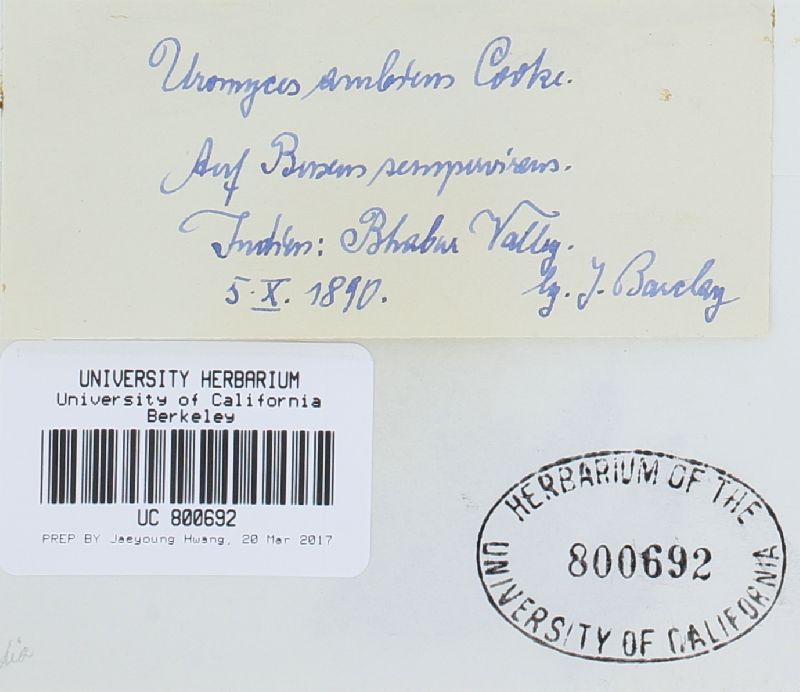 Uromyces ambiens Cooke.
Auf Buxus sempervirens.
Indien: Bhabar Valley.
5.X. 1890. lg. J. Barclay
UNIVERSITY HERBARIUM
University of California
Berkeley
UC 800692
PREP BY Jaeyoung Hwang, 20 Mar 2017
HERBARIUM OF THE
800692
UNIVERSITY OF CALIFORNIA